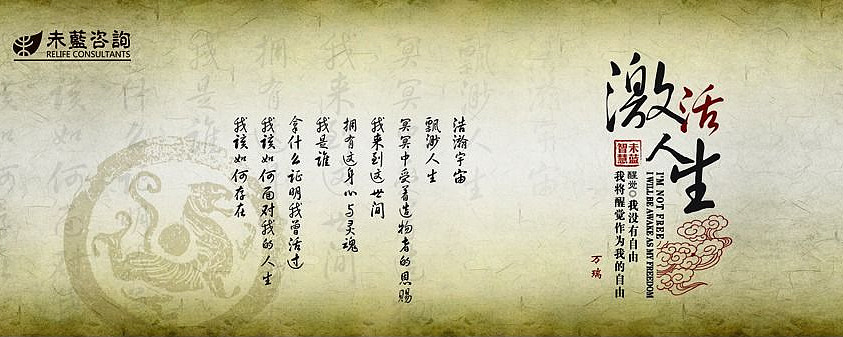 未藍咨詢
RELIFE CONSULTANTS
激活
人生
未蓝
智慧
醒觉○我没有自由
我将醒觉作为我的自由
I'M NOT FREE
I WILL BE AWAKE AS MY FREEDOM
万瑞
浩瀚宇宙
飘渺人生
冥冥中受着造物者的恩赐
我来到这世间
拥有这身心与灵魂
我是谁
拿什么证明我曾活过
我该如何面对我的人生
我该如何存在